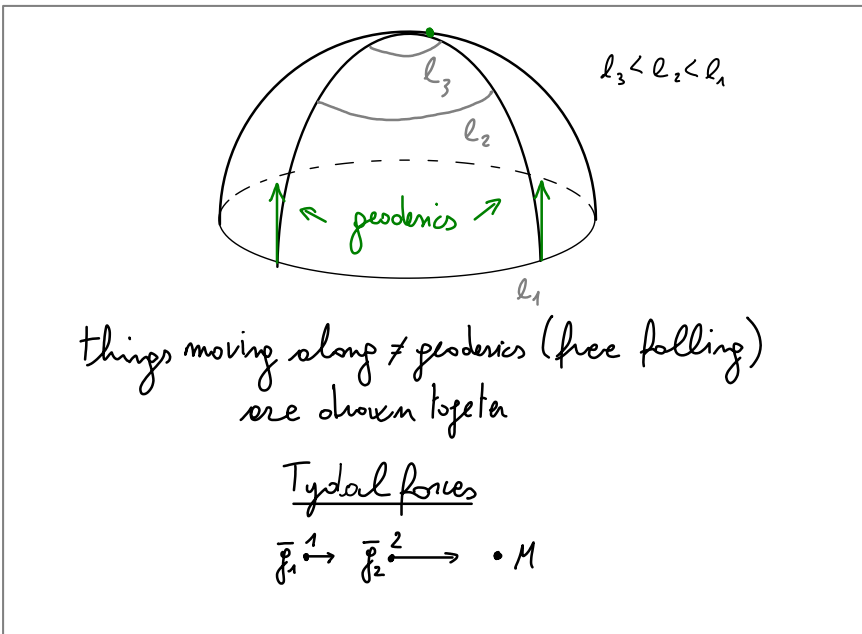 l₃ < l₂ < l₁
l₃
l₂
geodesics
l₁
things moving along ≠ geodesics (free falling)
are drawn togeter
Tydal forces
g̅₁ 1 g̅₂ 2 M